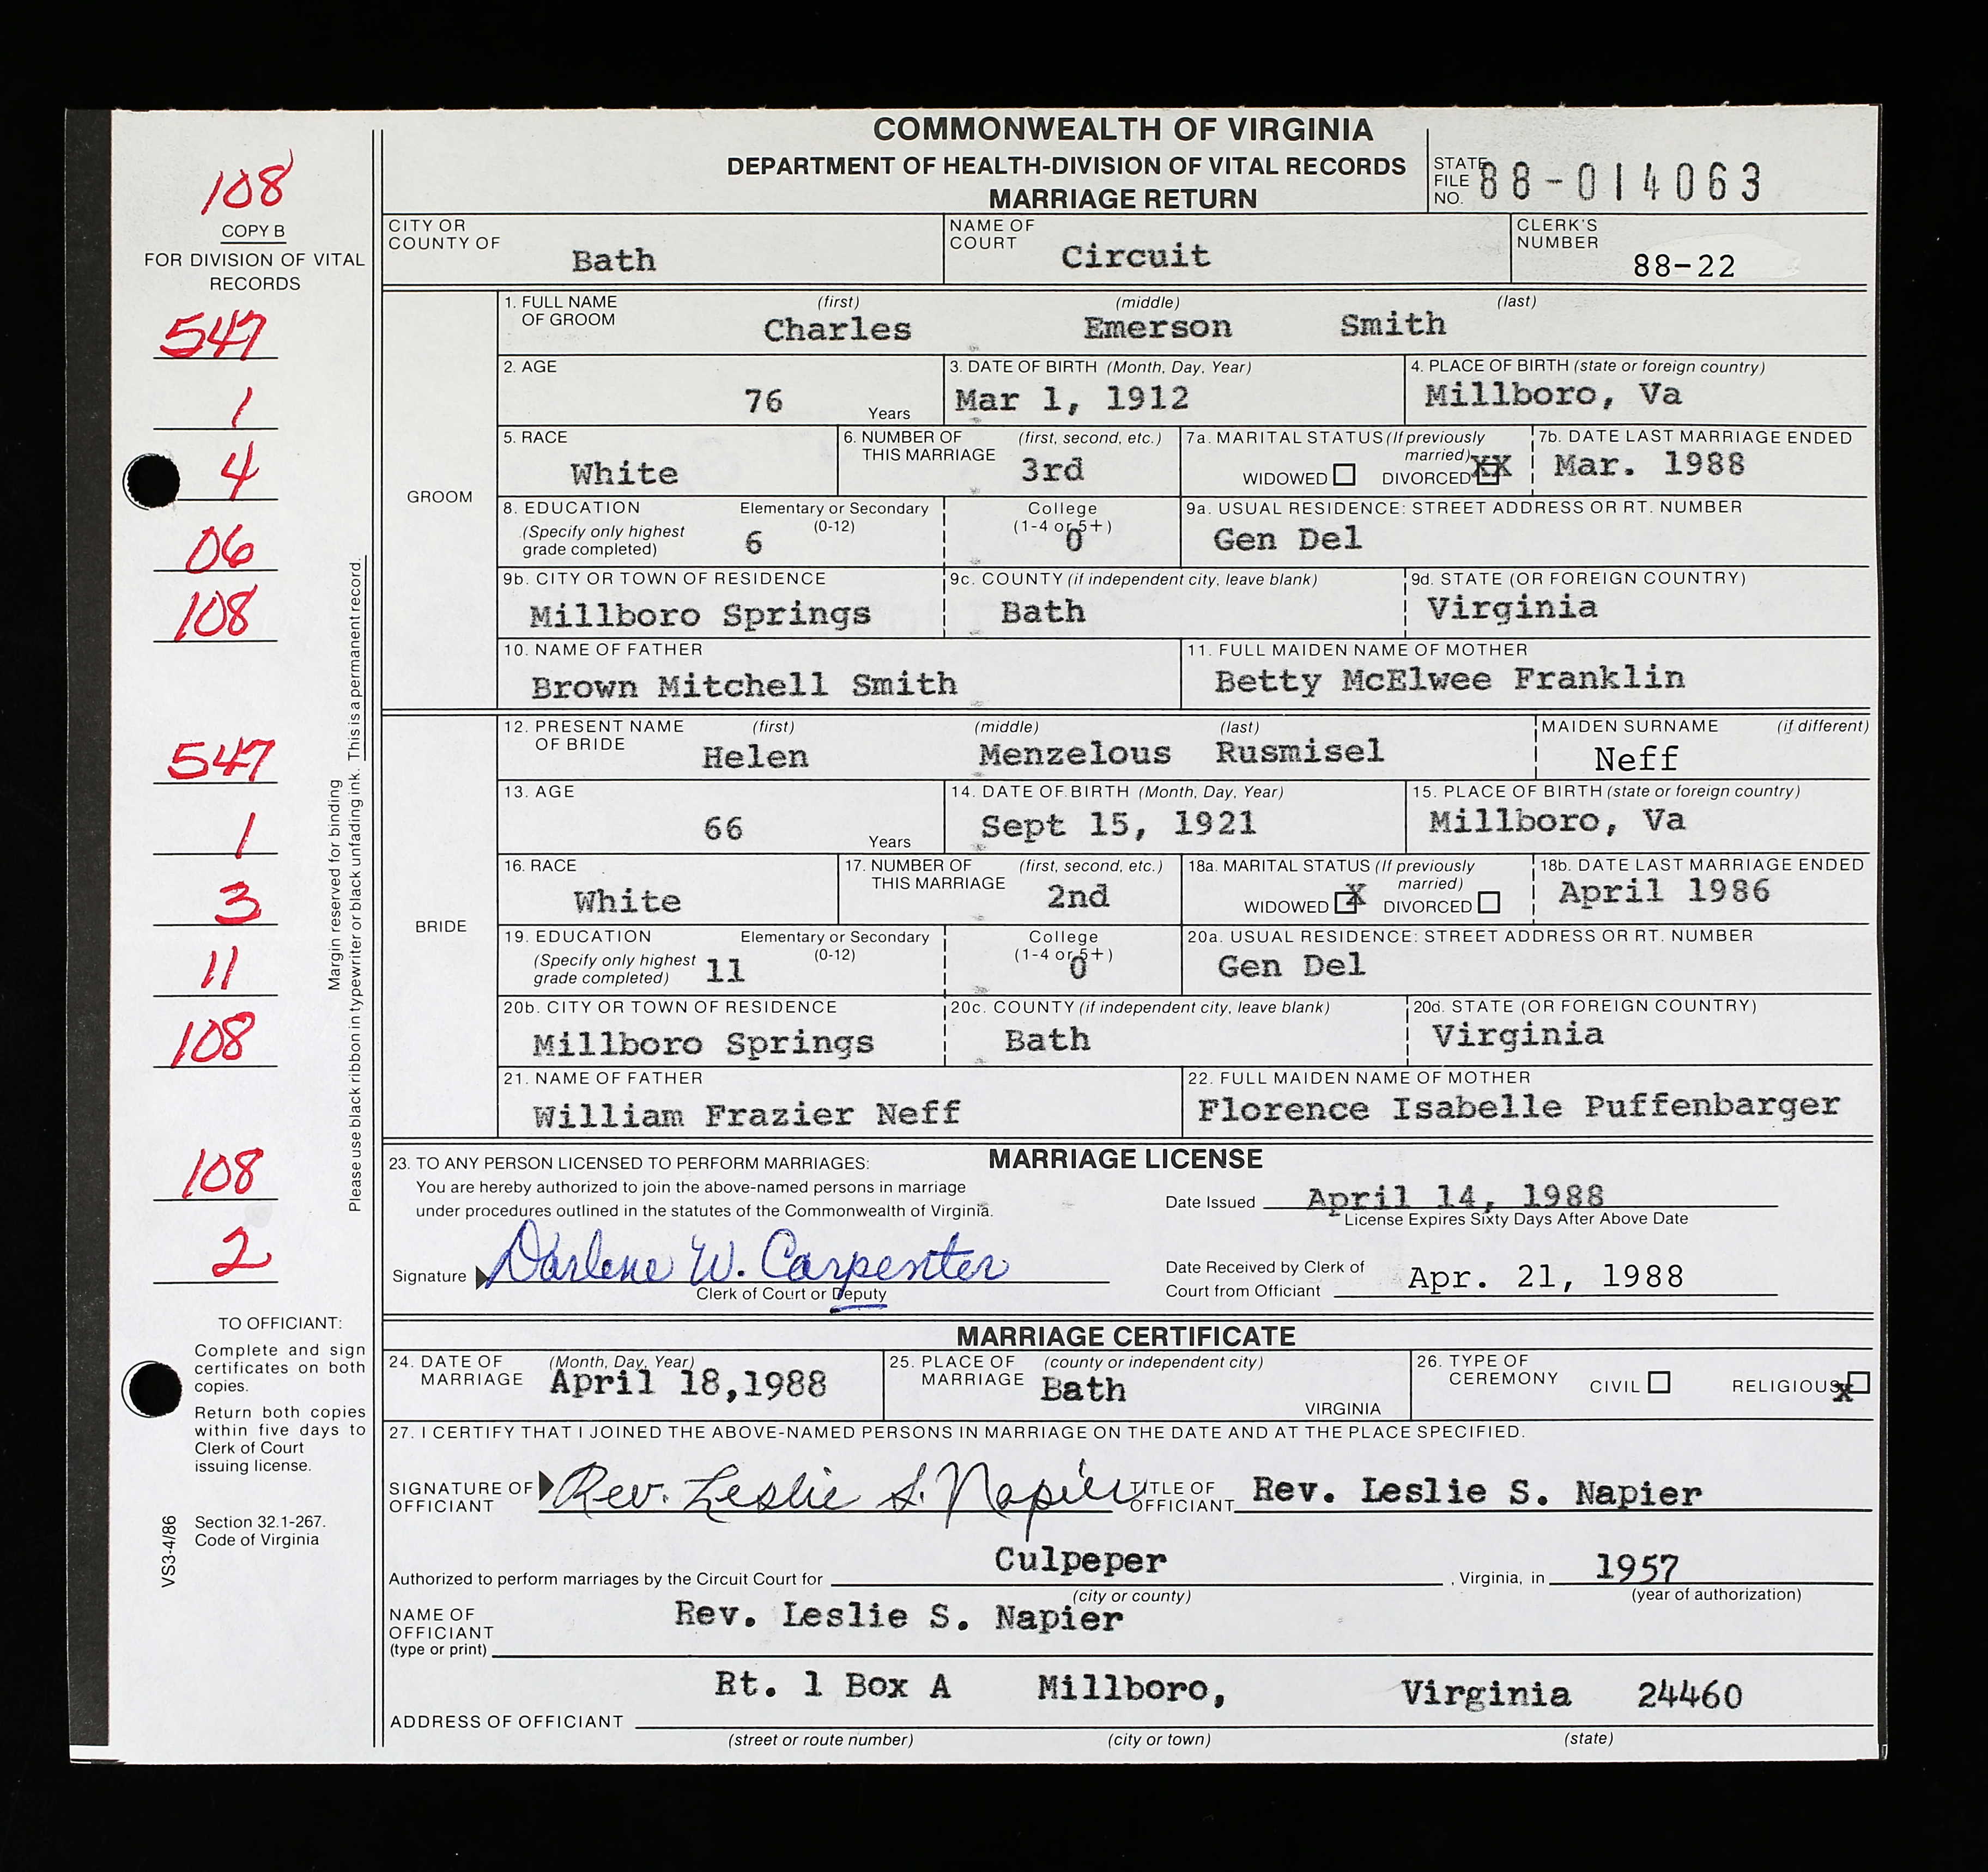 COMMONWEALTH OF VIRGINIA
DEPARTMENT OF HEALTH-DIVISION OF VITAL RECORDS
MARRIAGE RETURN
STATE FILE NO. 88-014063
108
COPY B
FOR DIVISION OF VITAL
RECORDS
547
1
4
06
108
547
1
3
11
108
108
2
Margin reserved for binding
Please use black ribbon in typewriter or black unfading ink. This is a permanent record.
TO OFFICIANT:
Complete and sign
certificates on both
copies.
Return both copies
within five days to
Clerk of Court
issuing license.
Section 32.1-267.
Code of Virginia
VS3-4/86
CITY OR COUNTY OF Bath
NAME OF COURT Circuit
CLERK'S NUMBER 88-22
GROOM
1. FULL NAME OF GROOM (first) Charles (middle) Emerson (last) Smith
2. AGE 76 Years
3. DATE OF BIRTH (Month, Day, Year) Mar 1, 1912
4. PLACE OF BIRTH (state or foreign country) Millboro, Va
5. RACE White
6. NUMBER OF THIS MARRIAGE (first, second, etc.) 3rd
7a. MARITAL STATUS (If previously married) WIDOWED DIVORCED XX
7b. DATE LAST MARRIAGE ENDED Mar. 1988
8. EDUCATION (Specify only highest grade completed) Elementary or Secondary (0-12) 6
College (1-4 or 5+) 0
9a. USUAL RESIDENCE: STREET ADDRESS OR RT. NUMBER Gen Del
9b. CITY OR TOWN OF RESIDENCE Millboro Springs
9c. COUNTY (if independent city, leave blank) Bath
9d. STATE (OR FOREIGN COUNTRY) Virginia
10. NAME OF FATHER Brown Mitchell Smith
11. FULL MAIDEN NAME OF MOTHER Betty McElwee Franklin
BRIDE
12. PRESENT NAME OF BRIDE (first) Helen (middle) Menzelous (last) Rusmisel
MAIDEN SURNAME (if different) Neff
13. AGE 66 Years
14. DATE OF BIRTH (Month, Day, Year) Sept 15, 1921
15. PLACE OF BIRTH (state or foreign country) Millboro, Va
16. RACE White
17. NUMBER OF THIS MARRIAGE (first, second, etc.) 2nd
18a. MARITAL STATUS (If previously married) WIDOWED X DIVORCED
18b. DATE LAST MARRIAGE ENDED April 1986
19. EDUCATION (Specify only highest grade completed) Elementary or Secondary (0-12) 11
College (1-4 or 5+) 0
20a. USUAL RESIDENCE: STREET ADDRESS OR RT. NUMBER Gen Del
20b. CITY OR TOWN OF RESIDENCE Millboro Springs
20c. COUNTY (if independent city, leave blank) Bath
20d. STATE (OR FOREIGN COUNTRY) Virginia
21. NAME OF FATHER William Frazier Neff
22. FULL MAIDEN NAME OF MOTHER Florence Isabelle Puffenbarger
MARRIAGE LICENSE
23. TO ANY PERSON LICENSED TO PERFORM MARRIAGES:
You are hereby authorized to join the above-named persons in marriage
under procedures outlined in the statutes of the Commonwealth of Virginia.
Date Issued April 14, 1988
License Expires Sixty Days After Above Date
Signature Darlene W. Carpenter
Clerk of Court or Deputy
Date Received by Clerk of
Court from Officiant Apr. 21, 1988
MARRIAGE CERTIFICATE
24. DATE OF MARRIAGE (Month, Day, Year) April 18,1988
25. PLACE OF MARRIAGE (county or independent city) Bath VIRGINIA
26. TYPE OF CEREMONY CIVIL RELIGIOUS x
27. I CERTIFY THAT I JOINED THE ABOVE-NAMED PERSONS IN MARRIAGE ON THE DATE AND AT THE PLACE SPECIFIED.
SIGNATURE OF OFFICIANT Rev. Leslie S. Napier
TITLE OF OFFICIANT Rev. Leslie S. Napier
Authorized to perform marriages by the Circuit Court for Culpeper , Virginia, in 1957
(city or county) (year of authorization)
NAME OF OFFICIANT (type or print) Rev. Leslie S. Napier
ADDRESS OF OFFICIANT Rt. 1 Box A Millboro, Virginia 24460
(street or route number) (city or town) (state)